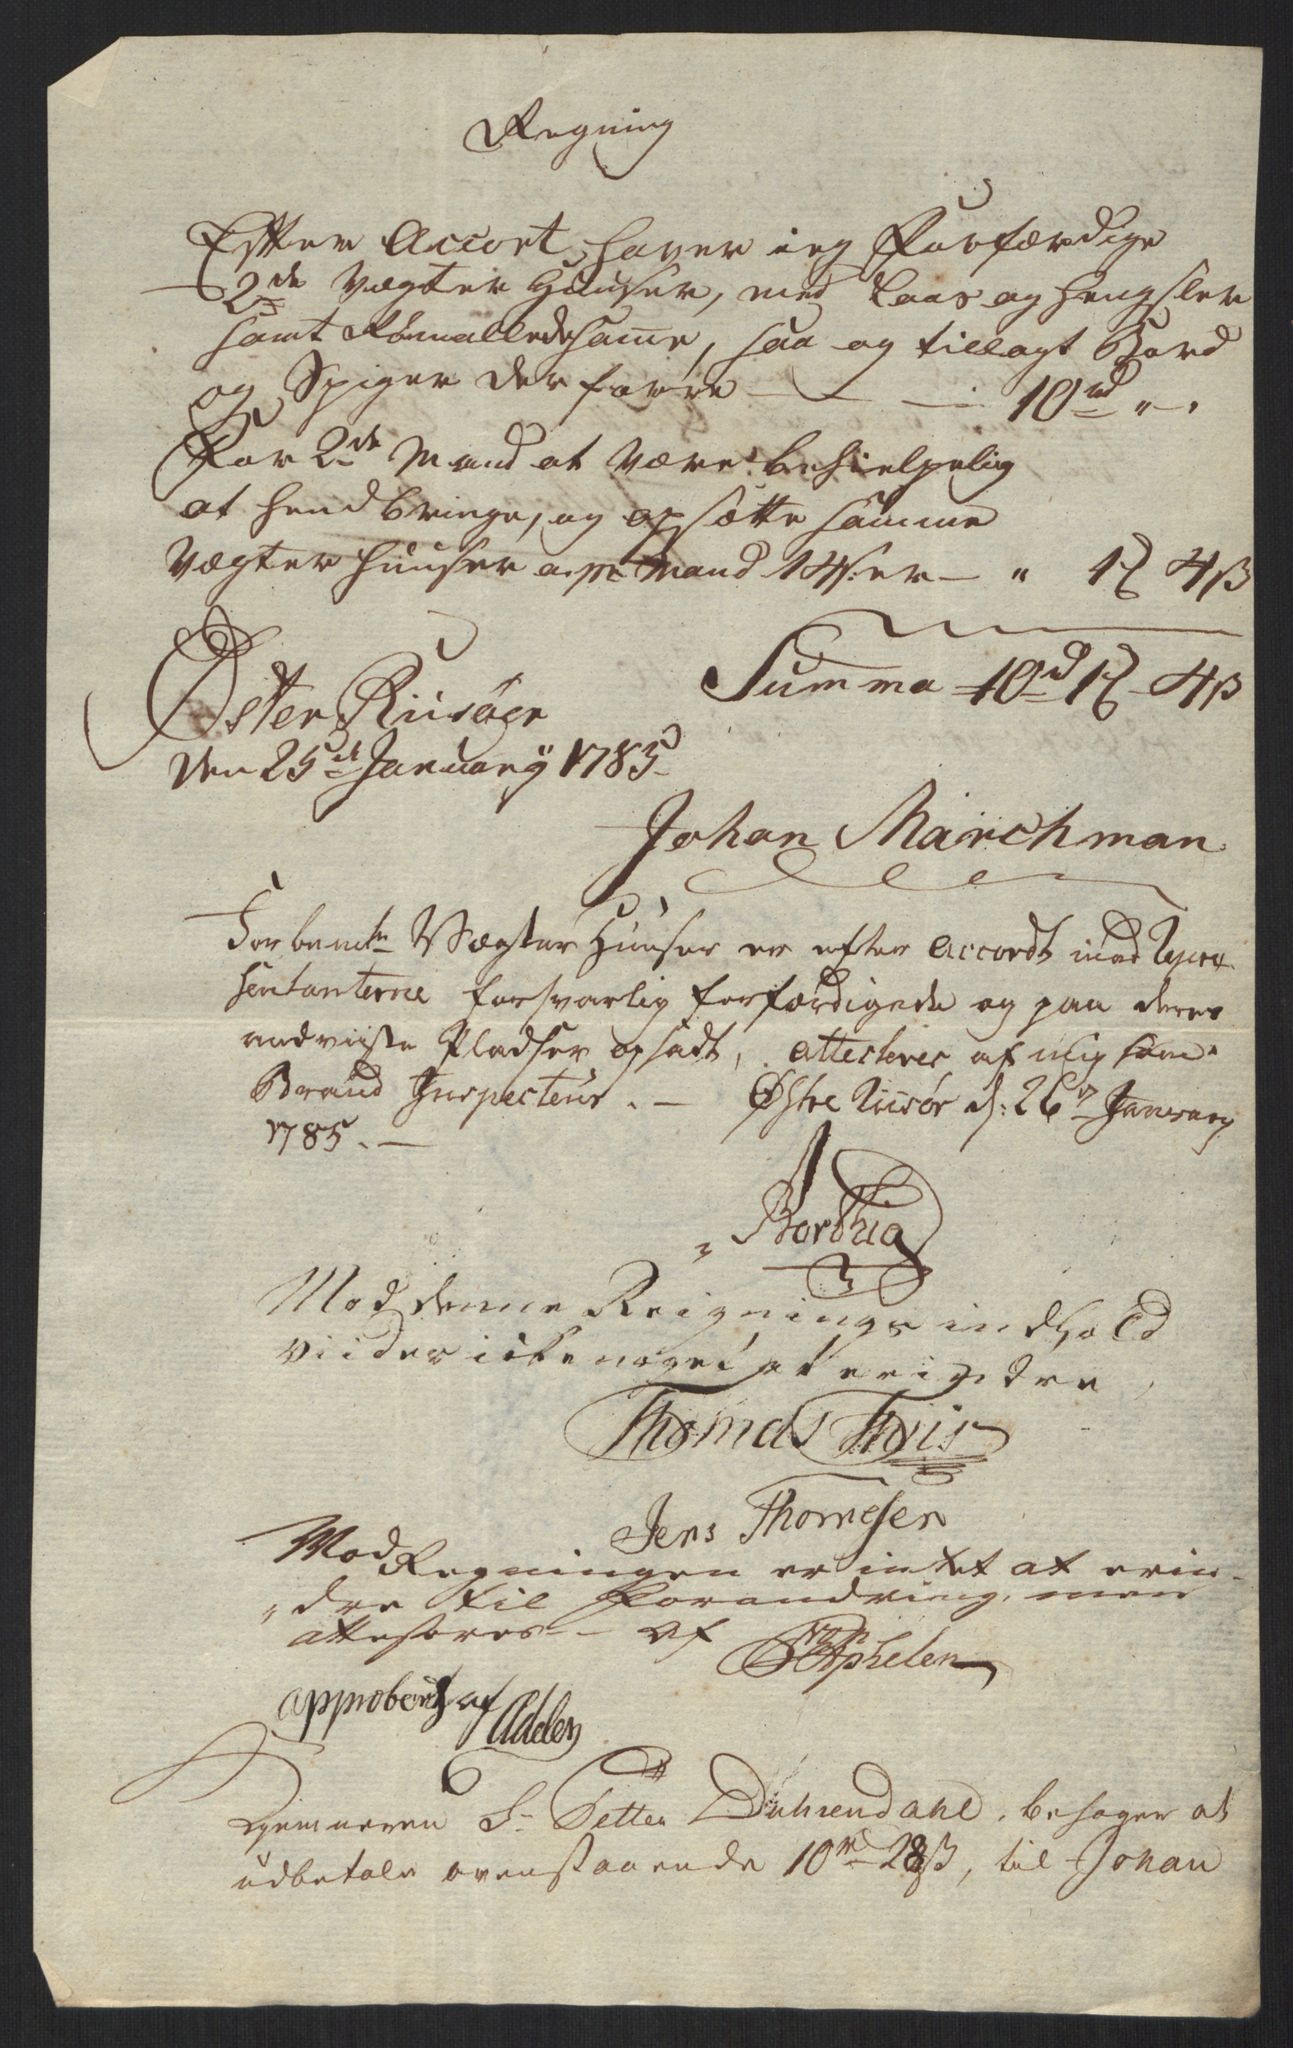 Regning
Efter Accort haver ieg Forfærdige
2de Vægter Huuser, med Laas og Hengsler
samt Rømalledesamme, saa og tillagt Bord
og Spiger der forre — — 10rd „ - „
For 2de Mand at være behielpelig
at hendbringe, og opsætte samme
Vægter huuser a pr Mand 14ß: er — „ 1 4ß
Summa 10rd 1 4ß
Øster Riisöer
den 25de January 1785
Johan Marchman
Forbemte Vægter Huuser er efter Accordt med Repræ-
sentanterne forsvarlig forfærdigede og paa deres
andviiste Pladser opsadt, attesteres af mig som
Brand Inspecteur. — Østre Riisør d: 26 January
1785. —
Mod denne Reignings indhold
viider icke noget at erindre
Thomas Friis
Jens Thomesen
Mod Regningen er intet at erin-
dre til Forandring, men
attesteres af
Aphelen
approberes af
Adeler
Kiemneren Sr Petter Duhrendahl behager at
udbetale ovenstaaende 10rd 28ß, til Johan